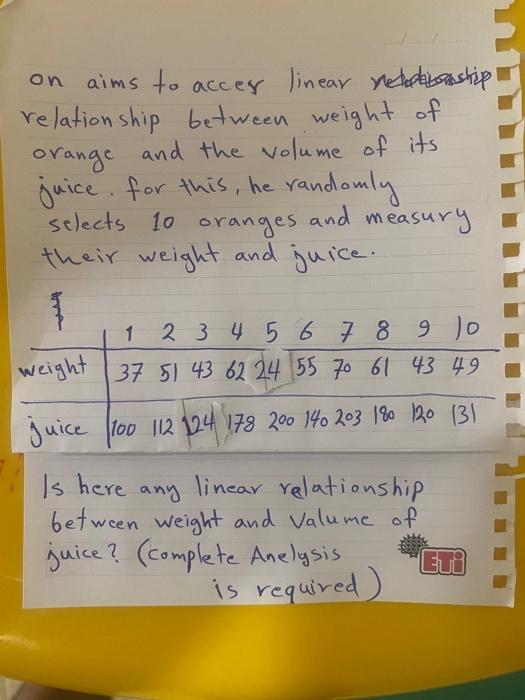 on aims to acces linear
relationship between weight of
orange and the volume of its
juice. for this, he randomly
selects 10 oranges and measury
their weight and juice.
1 2 3 4 5 6 7 8 9 10
weight 37 51 43 62 24 55 70 61 43 49
juice 100 112 124 178 200 140 203 180 120 131
Is here any linear relationship
between weight and Valume of
juice? (complete Anelysis
is required)
ETi